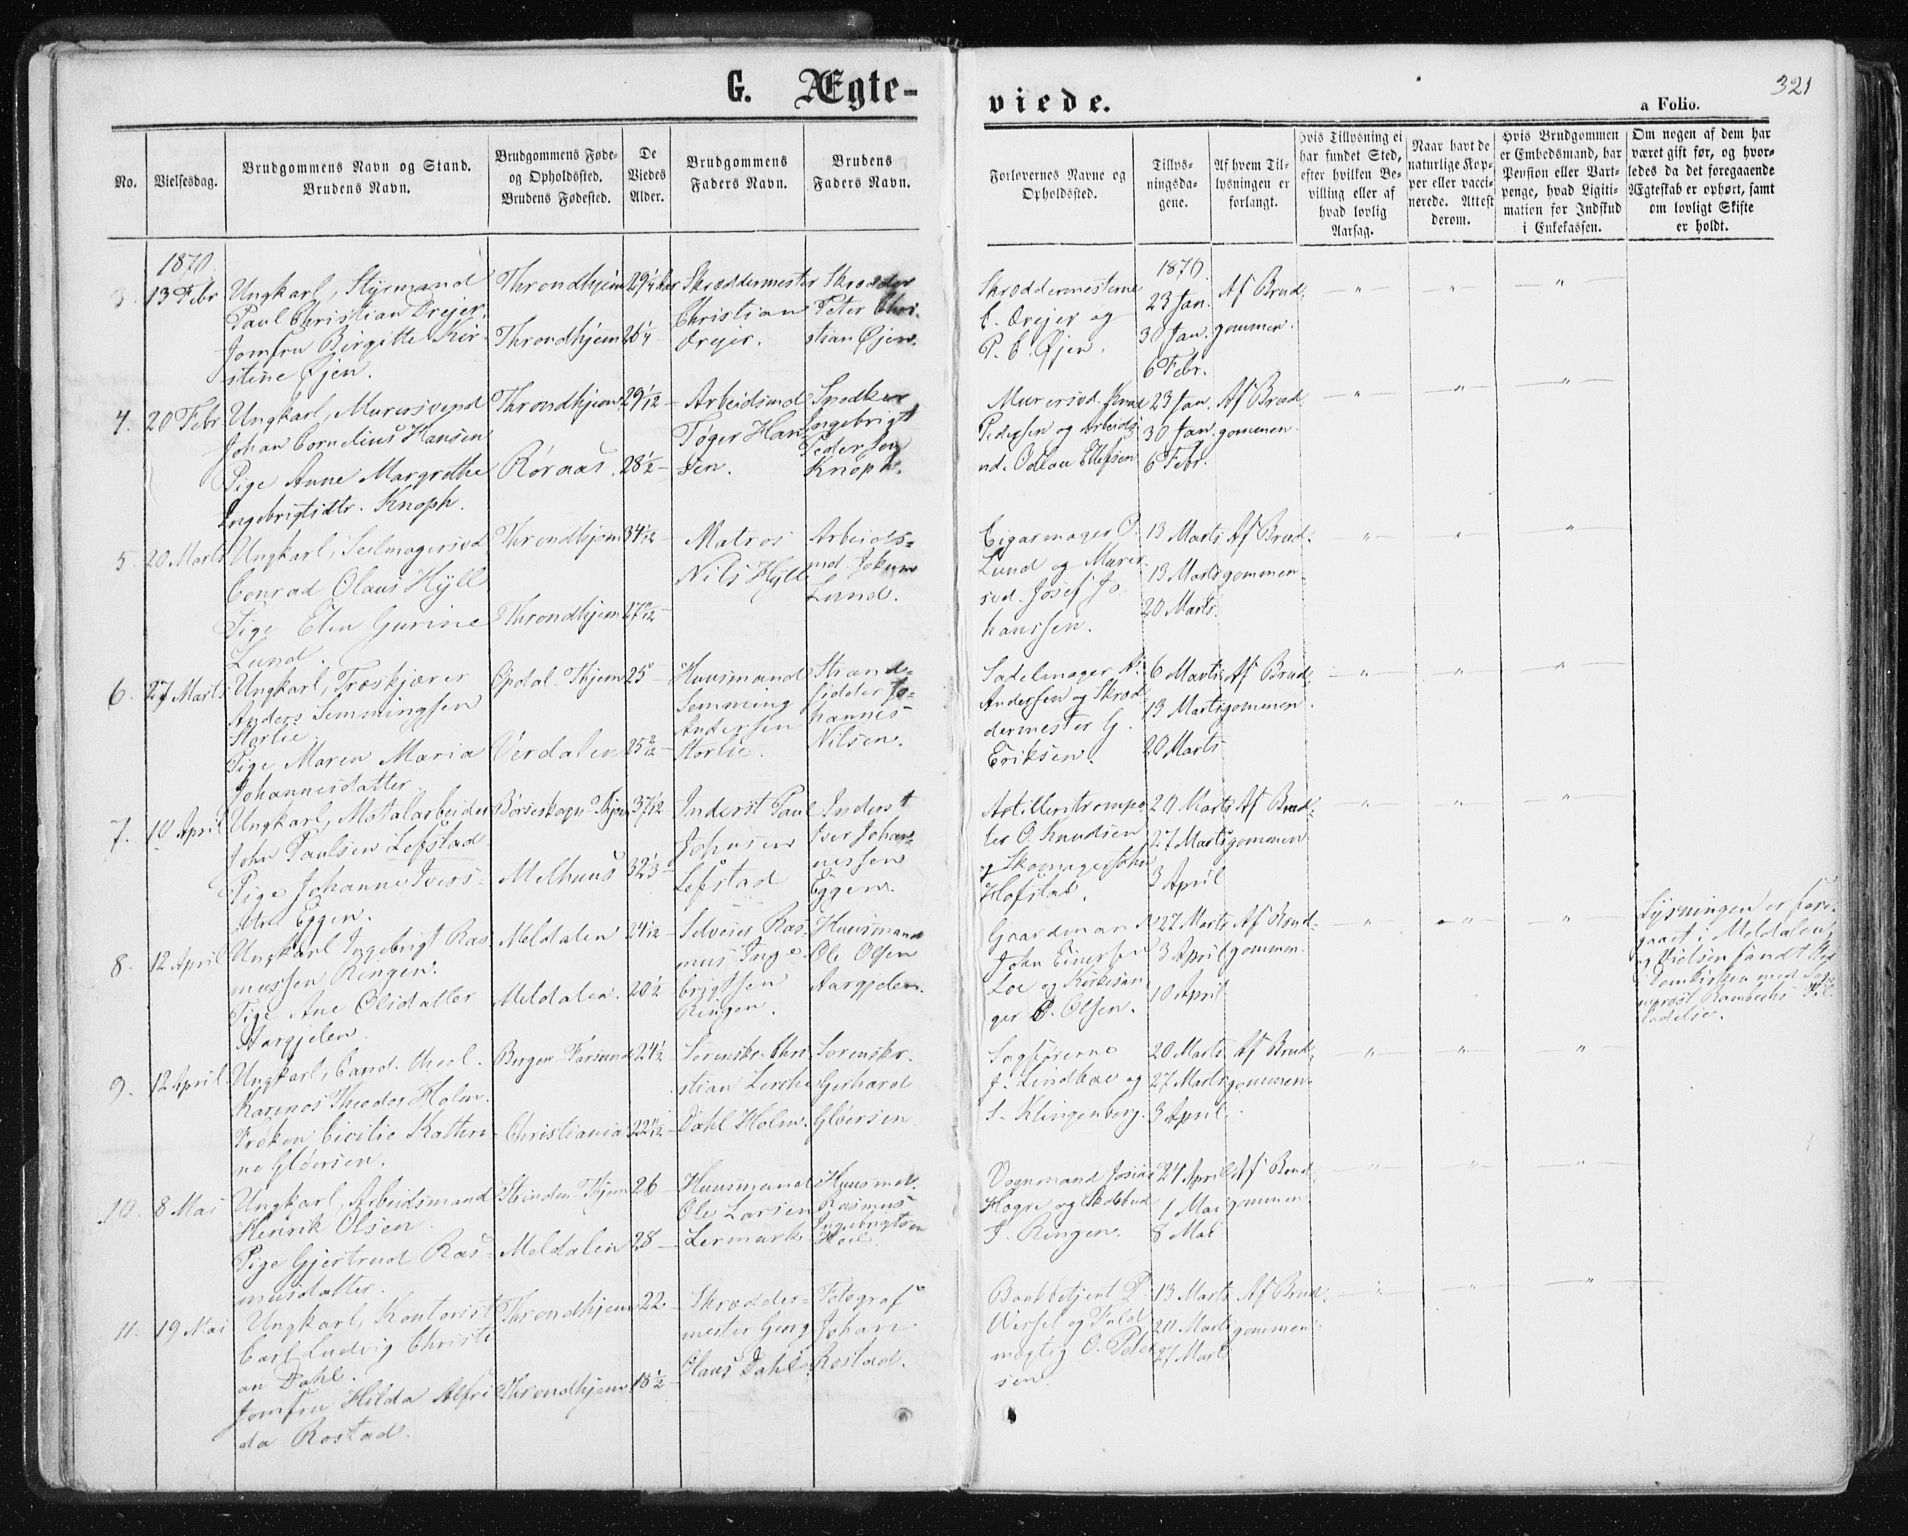 G. Ægte-
viede.
321
a Folio.
No.
Vielsesdag.
Brudgommens Navn og Stand.
Brudens Navn.
Brudgommens Føde-
og Opholdssted.
Brudens Fødested.
De
Viedes
Alder.
Brudgommens
Faders Navn.
Brudens
Faders Navn.
Forlovernes Navne og
Opholdssted.
Tillys-
ningsda-
gene.
Af hvem Til-
lysningen er
forlangt.
Hvis Tillysning ei
har fundet Sted,
efter hvilken Be-
villing eller af
hvad lovlig
Aarsag.
Naar havt de
naturlige Kop-
per eller vacci-
nerede. Attest
derom.
Hvis Brudgommen
er Embedsmand, har
Pension eller Vart-
penge, hvad Ligiti-
mation for Indskud
i Enkekassen.
Om nogen af dem har
været gift før, og hvor-
ledes da det foregaaende
Ægteskab er ophørt, samt
om lovligt Skifte
er holdt.
1870.
3. 13 Febr
Ungkarl, Styrmand
Paul Christian Drejer.
Jomfru Birgitte Kir-
stine Øjen.
Throndhjem
Throndhjem
29 1/4
26 1/4
Skræddermester
Christian
Drejer.
Skrædder
Peter Chri-
stian Øjen.
Skræddermesterne
C. Drejer og
P. C. Øjen.
1870.
23 Jan.
30 Jan.
6 Febr.
Af Brud-
gommen.
4. 20 Febr
Ungkarl, Murersvend
Johan Cornelius Hansen
Pige Anne Margrethe
Ingebrigtsdtr. Knoph.
Throndhjem
Røraas.
29 1/12
28 1/2
Arbeidsmd
Tøger Han-
sen.
Snedker
Ingebrigt
Pedersen
Knoph.
Murersvd. Knud
Pedersen og Arbeids-
md. Odean Ellefsen
23 Jan.
30 Jan.
6 Febr.
Af Brud-
gommen
5. 20 Marts
Ungkarl, Seilmagersvd
Conrad Olaus Hyll
Pige Elen Gurine
Lund.
Throndhjem
Throndhjem
34 1/12
Matros
Nils Hyll
Arbeids-
md. Jokum
Lund.
Cigarmager P.
Lund og Murer-
svd. Josef Jo-
hanssen.
13 Marts
13 Marts
20 Marts
Af Brud-
gommen
6. 27 Marts
Ungkarl, Træskjærer
Anders Semmingsen
Storlie.
Pige Maren Maria
Johannesdatter
Opdal Thjem
Verdalen
25
25 2/12
Huusmand
Semming
Andersen
Storlie.
Strand-
sidder Jo-
hannes
Nilsen.
Sadelmager A.
Andersen og Skræd-
dermester G.
Eriksen.
6 Marts
13 Marts
20 Marts
Af Brud-
gommen
7. 10 April
Ungkarl, Metalarbeider
John Paulsen Lefstad
Pige Johanne Ivers-
dtr Eggen.
Børseskogn Thjem
Melhuus
32 1/3
Inderst Paul
Johnsen
Lefstad
Inderst
Iver Johan-
nessen
Eggen.
Artilleritrompe-
ter O. Knudsen
og Skomager
Hofstad.
20 Marts
27 Marts
3 April
Af Brud-
gommen
8. 12 April
Ungkarl Ingebrigt Ras-
mussen Ringen.
Pige Ane Olsdatter
Aargjelen.
Meldalen
Meldalen.
24 1/12
20 1/2
Selveier Ras-
mus Inge-
brigtsen
Ringen.
Huusmand
Ole Olsen
Aargjelen.
Gaardmand
John Einersen
Loe og Kirkesan-
ger O. Olsen.
27 Marts
3 April
10 April
Af Brud-
gommen
Lysningen er fore-
gaaet i Meldalen
og Vielsen fandt Sted
i Domkirken med Sog-
neprest Rambechs Til-
ladelse.
9. 12 April
Ungkarl, Cand. theol.
Karenos Theodor Holm.
Frøken Cicilie Kathri-
ne Gløersen.
Bergen Farsund
Christiania
24 1/2
Sorenskr. Chri-
stian Lerche
Dahl Holm.
Sorenskr.
Gerhard
Gløersen
Sagførerne
J. Lindboe og
S. Klingenberg.
20 Marts
27 Marts
3 April
Af Brud-
gommen
10. 8 Mai
Ungkarl, Arbeidsmand
Henrik Olsen
Pige Gjertrud Ras-
musdatter.
Strinden Thjem
Meldalen
26
28
Huusmand
Ole Larsen
Lermark
Huusmd.
Rasmus
Ingebrigtsen
Vognmand Josias
Hogre og Skolebud
J. Ringen.
24 April
1 Mai
8 Mai
Af Brud-
gommen
11. 19 Mai
Ungkarl, Kontorist
Carl Ludvig Christi-
an Dahl.
Jomfru Hilda Alfri-
da Rostad.
Throndhjem
Throndhjem
22
18 1/2
Skrædder-
mester Georg
Olaus Dahl
Fotograf
Johan
Rostad.
Bankbetjent P.
Wissel og Fuld-
mægtig O. Peter-
sen.
13 Marts
20 Marts
27 Marts
Af Brud-
gommen